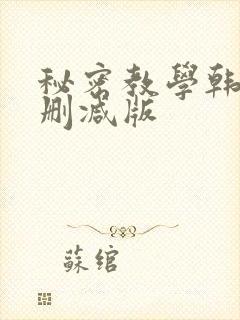 秘密教學韩
删减版
蘇绾